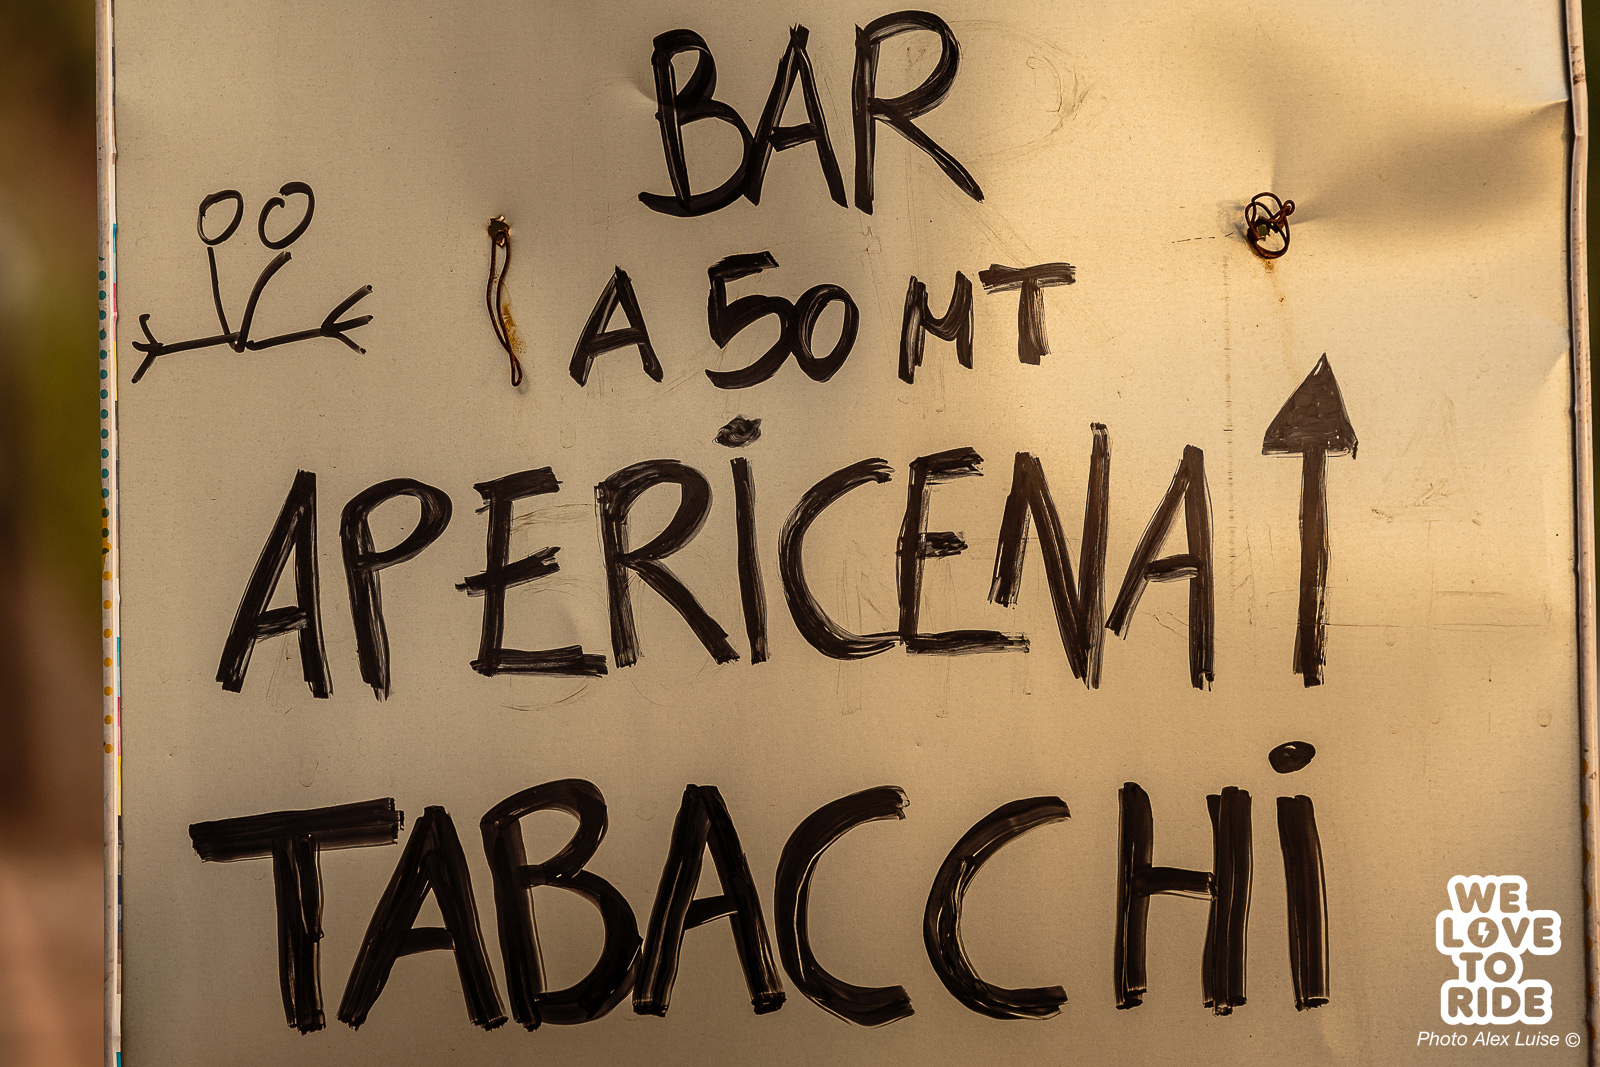 BAR
A 50 MT
APERiCENA
TABACCHi
WE
LOVE
TO
RIDE
Photo Alex Luise ©